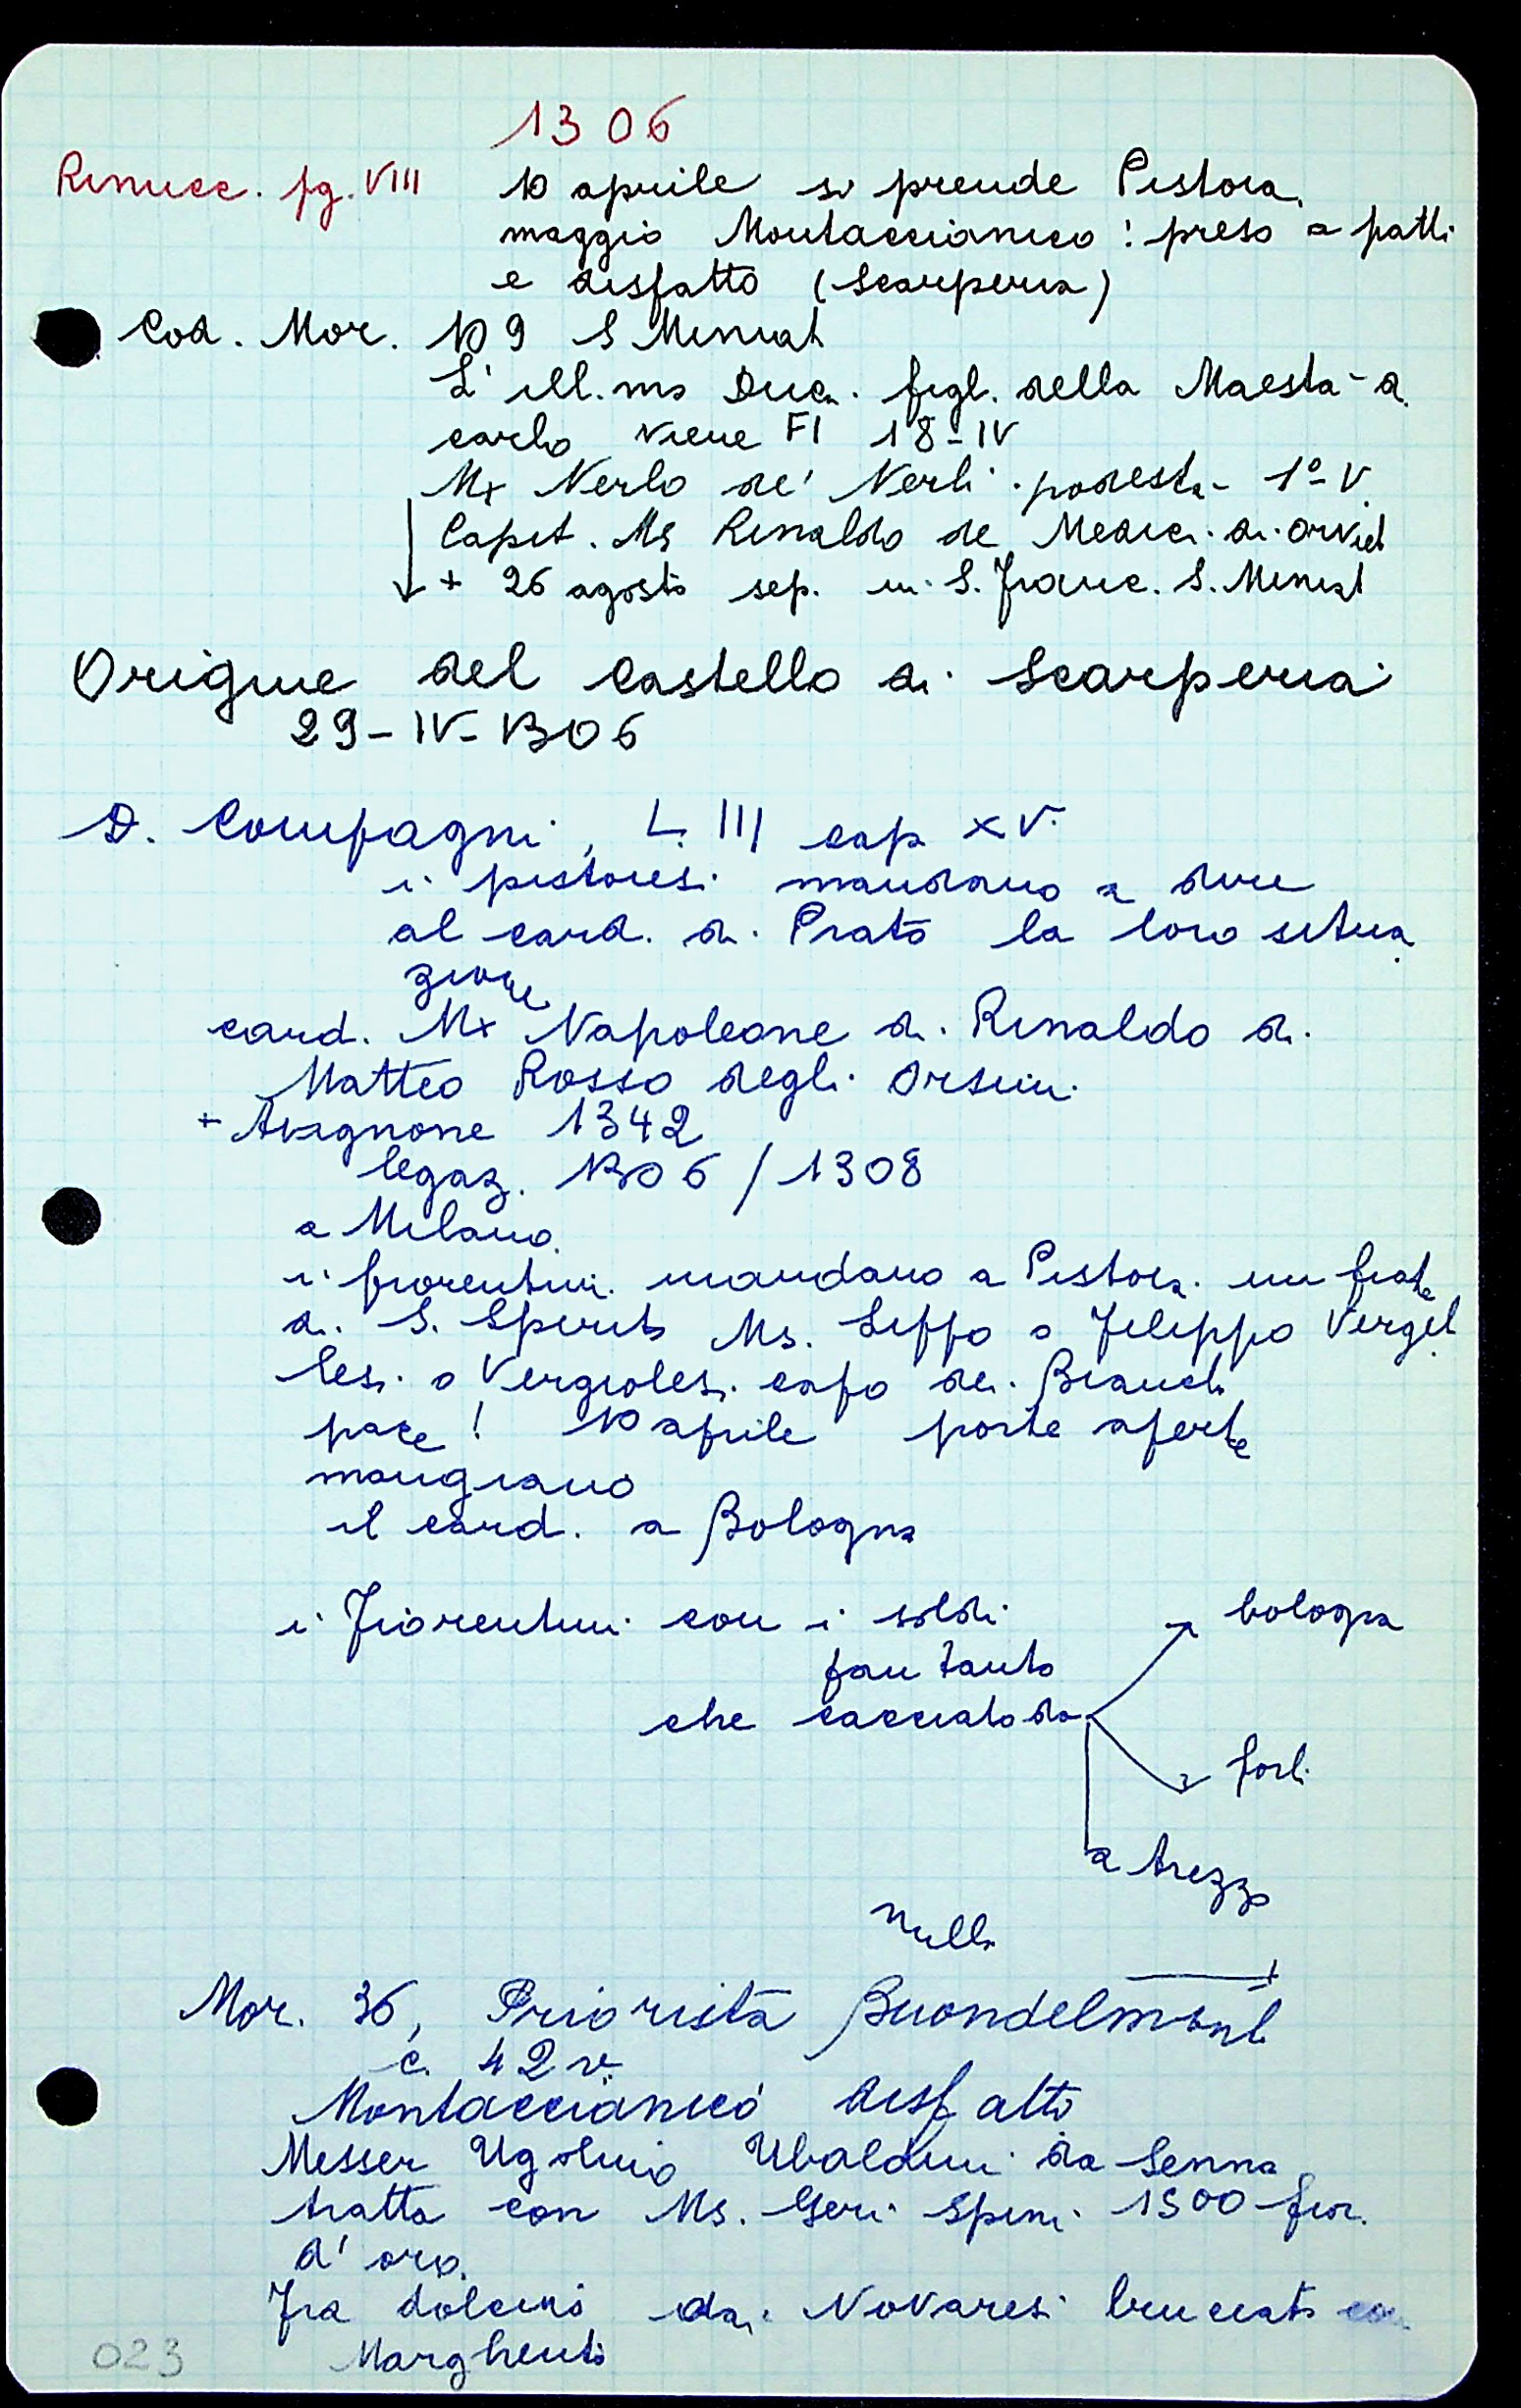 1306
Rinucc. pg. VIII 10 aprile si prende Pistoia.
maggio Montaccianico : preso a patti
e disfatto (Scarperia)
Cod. Mor. 109 S Miniat
L' ill.mo Duca. figl. della Maestà d.
carlo viene FI 18-IV
Mx Nerlo de' Nerli podestà 1º-V.
Capit. Ms Rinaldo de Medici di Orviet
+ 26 agosto sep. in S. Franc. S. Miniat
Origine del Castello di Scarperia
29-IV-1306
D. Compagni, L. III cap XV.
i pistoiesi mandano a dire
al card. di Prato la loro situa
zione
card. Mx Napoleone di Rinaldo di
Matteo Rosso degli Orsini
+ Avignone 1342
legaz. 1306 / 1308
a Milano.
i fiorentini mandano a Pistoia un frate
di S. Spirito Ms. Lippo o Filippo Vergel
lesi o Vergiolesi capo dei Bianchi
pace! 10 aprile porte aperte
mangiano
il card. a Bologna
i Fiorentini con i soldi
fan tanto
che cacciato da
bologna
forlì
a Arezzo
nulla
Mor. 36, Priorista Buondelmonti
c. 42 v.
Montaccianico disfatto
Messer Ugolino Ubaldini da Senna
tratta con Ms. Geri Spini 1500 fior.
d' oro.
Fra dolcino dai Novaresi bruciato con
Margherita
023